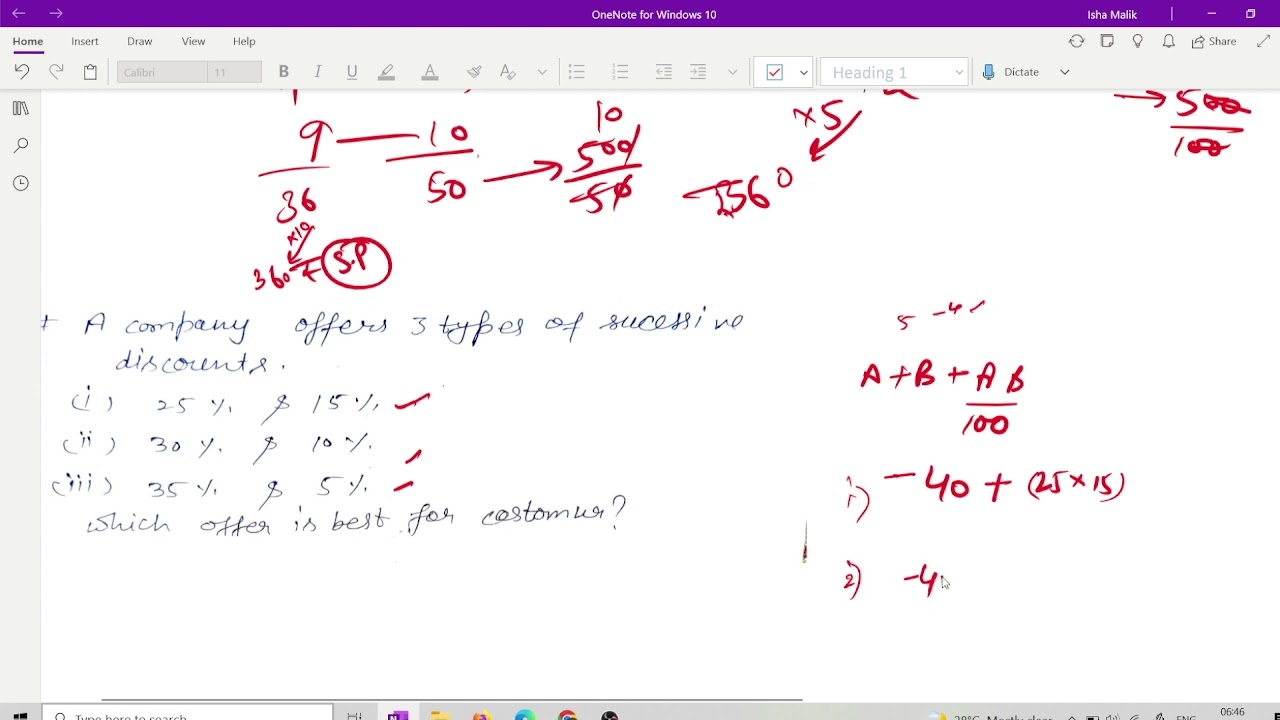 OneNote for Windows 10
Isha Malik
Home Insert Draw View Help
Share
Calibri 11 B I U A
Heading 1
Dictate
9 — 10
36
50
×10
360
S.P
10
500
50
×5
500
100
+ A company offers 3 types of sucessive
discounts.
(i) 25 %. & 15 %.
(ii) 30 %. & 10 %.
(iii) 35 %. & 5 %.
which offer is best for costomur?
5 -4
A + B + A B
100
i) - 40 + (25 × 15)
2) -4
Type here to search
28°
Mostly clear
ENG
06:46